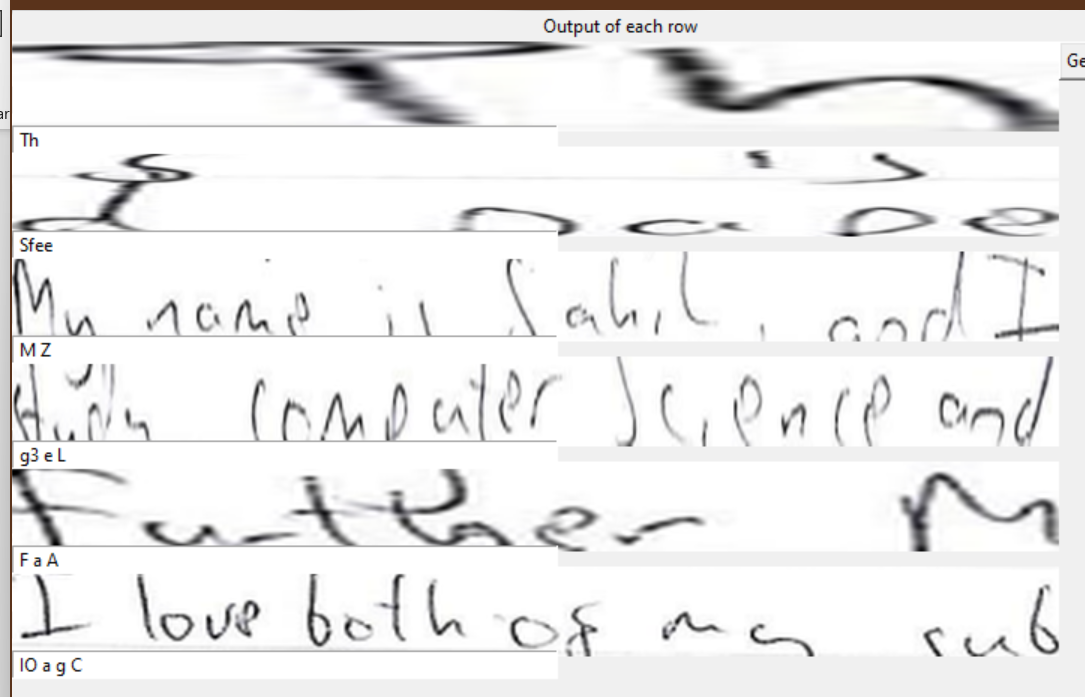 Output of each row
Ge
ar
Th
Sfee
My name is Sahil, and I
M Z
study computer science and
g3 e L
Further M
F a A
I love both of my sub
IO a g C